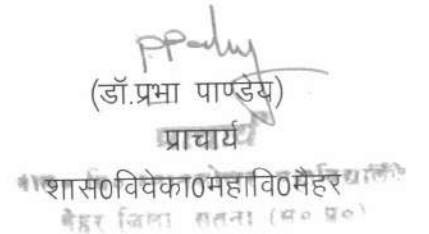 (डॉ.प्रभा पाण्डेय)
प्राचार्य
शास0विवेका0महावि0मैहर
मैहर जिला सतना (म० प्र०)